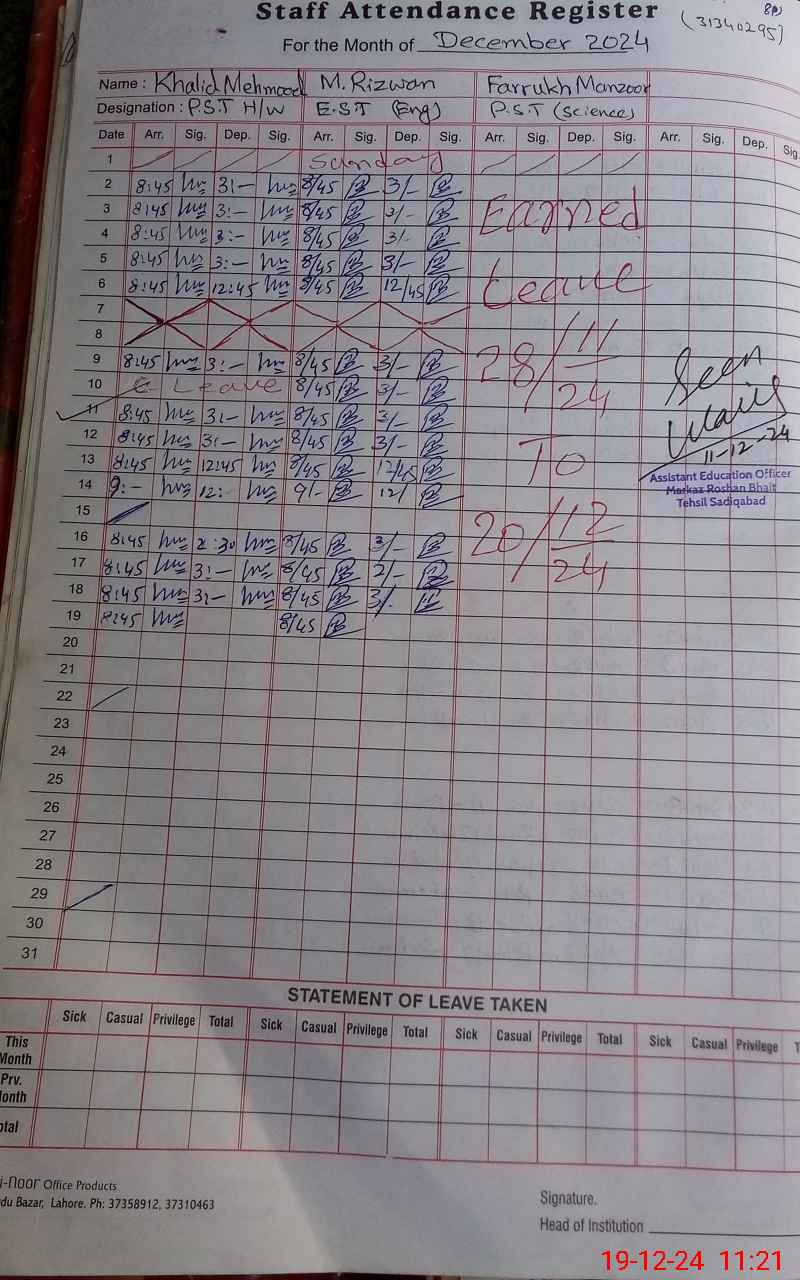 Staff Attendance Register
(31340295)
For the Month of December 2024
Name : Khalid Mehmood M. Rizwan Farrukh Manzoor
Designation : P.S.T H/W E.S.T (Eng) P.S.T (Science)
Date Arr. Sig. Dep. Sig. Arr. Sig. Dep. Sig. Arr. Sig. Dep. Sig. Arr. Sig. Dep. Sig.
1 Sunday
2 8:45 3:- 8/45 3/-
3 8:45 3:- 8/45 3/-
4 8:45 3:- 8/45 3/-
5 8:45 3:- 8/45 3/-
6 8:45 12:45 8/45 12/45
Earned
Leave
28/11/24
To
20/12/24
7
8
9 8:45 3:- 8/45 3/-
10 E- Leave 8/45 3/-
11 8:45 3:- 8/45 3/-
12 8:45 3:- 8/45 3/-
13 8:45 12:45 8/45 12/45
14 9:- 12:- 9/- 12/
15
16 8:45 2:30 8/45 3/-
17 8:45 3:- 8/45 2/-
18 8:45 3:- 8/45 3/-
19 8:45 8/45
20
21
22
23
24
25
26
27
28
29
30
31
Seen
11-12-24
Assistant Education Officer
Markaz Roshan Bhait
Tehsil Sadiqabad
STATEMENT OF LEAVE TAKEN
Sick Casual Privilege Total Sick Casual Privilege Total Sick Casual Privilege Total Sick Casual Privilege T
This
Month
Prv.
onth
otal
i-noor Office Products
rdu Bazar, Lahore. Ph: 37358912, 37310463
Signature.
Head of Institution
19-12-24 11:21